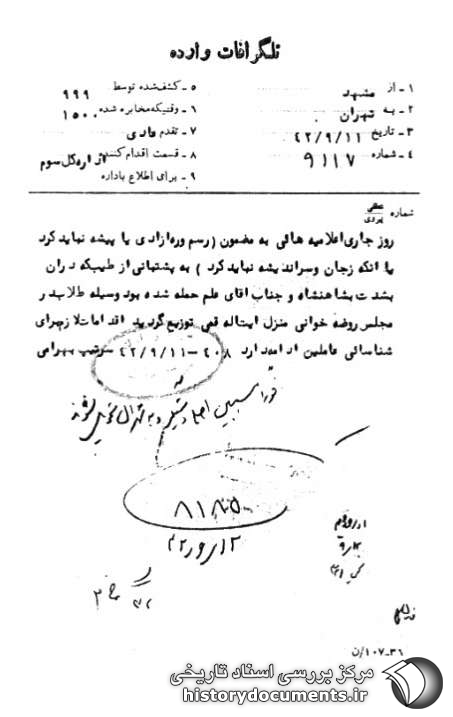 تلگرافات وارده
۱ - از مشهد
۲ - به تهران
۳ - تاریخ ۴۲/۹/۱۱
۴ - شماره ۹۱۱۷
۵ - کشف‌شده توسط ۹۹۹
۶ - وقتیکه مخابره شده ۱۵۰۰
۷ - تقدم عادی
۸ - قسمت اقدام‌کننده اداره کل سوم
۹ - برای اطلاع باداره
شماره عطفی پیروی
روز جاری اعلامیه هائی به مضمون ( رسم و ره ازادی یا پیشه نباید کرد
یا انکه زجان وسر اندیشه نباید کرد ) به پشتیبانی از طیب که در ان
بشدت بشاهنشاه و جناب اقای علم حمله شده بود وسیله طلاب در
مجلس روضه خوانی منزل ایت اله قمی توزیع گردید اقدامات لازم برای
شناسائی عاملین ادامه دارد ۴۰۸ - ۴۲/۹/۱۱ سرتیپ بهرامی
فورا مسببین اعلام دستگیر و به تهران تحویل شوند
۸۱۸۵۰
۳۶-۱۰۷/ن
مرکز بررسی اسناد تاریخی
historydocuments.ir